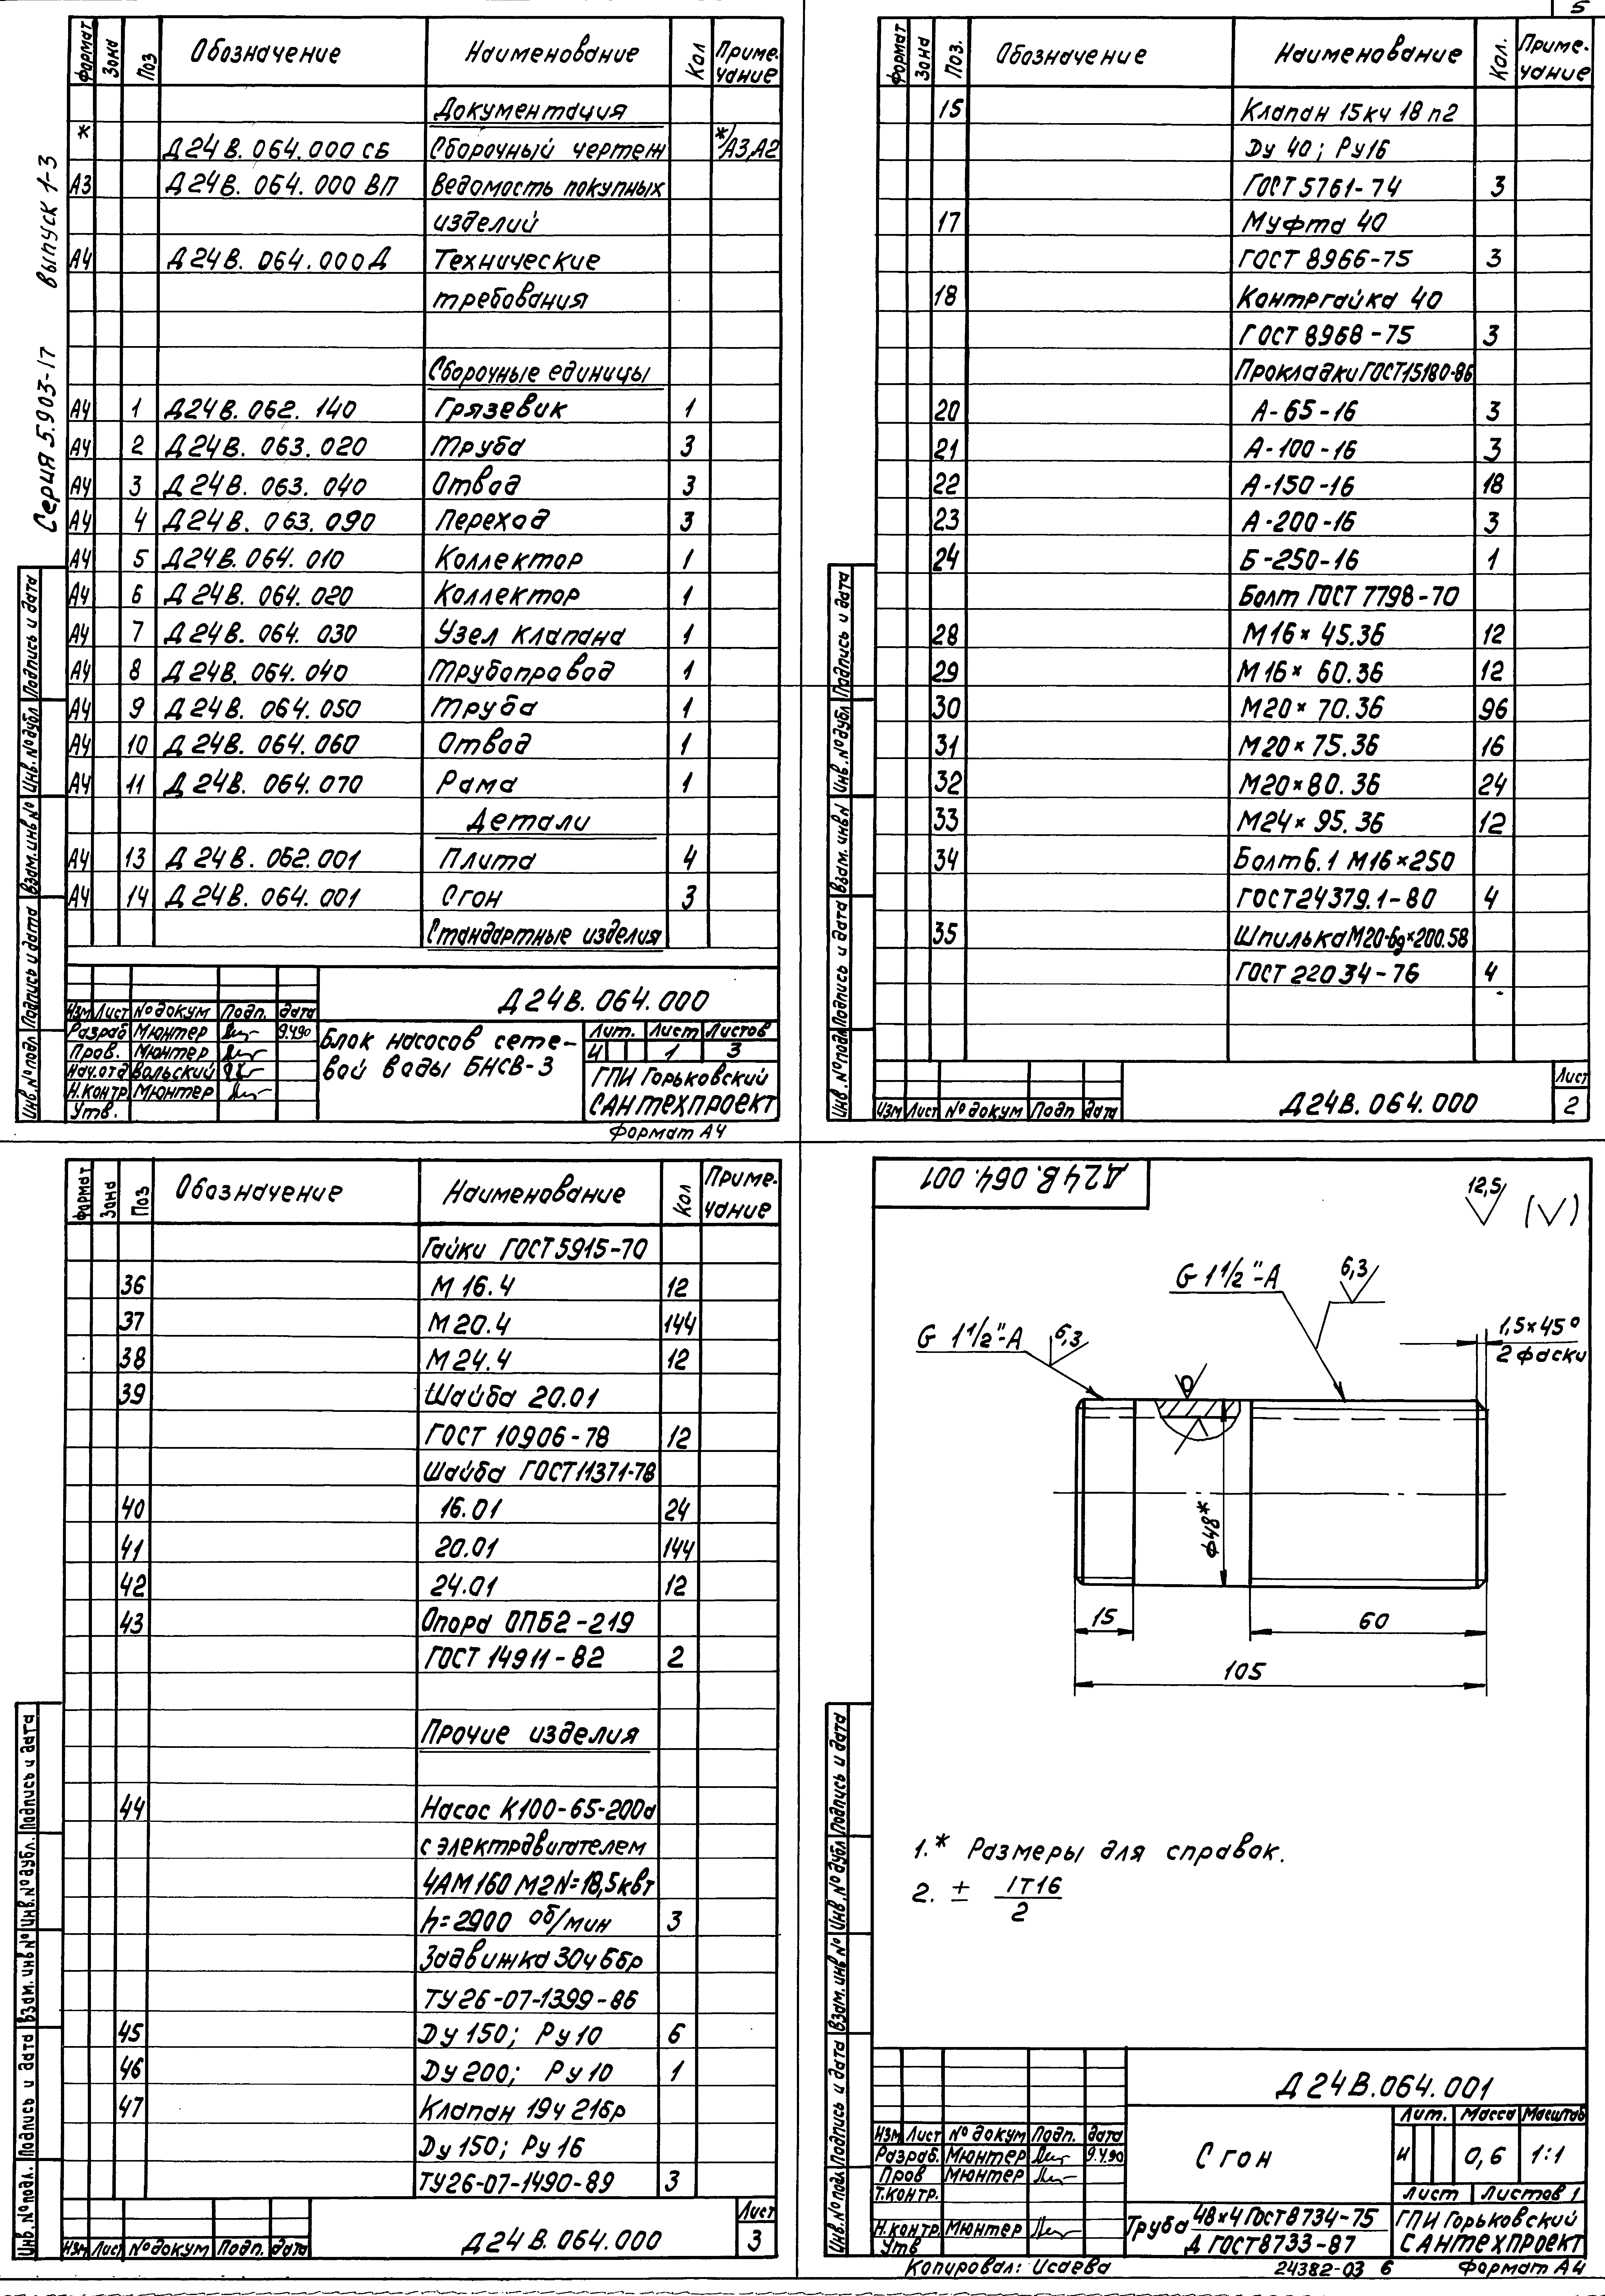 Серия 5.903-17 выпуск 1-3
Формат Зона Поз Обозначение Наименование Кол Приме-
чание
Документация
* Д24В.064.000 СБ Сборочный чертеж */А3,А2
А3 Д24В.064.000 ВП Ведомость покупных
изделий
А4 Д24В.064.000 Д Технические
требования
Сборочные единицы
А4 1 Д24В.062.140 Грязевик 1
А4 2 Д24В.063.020 Труба 3
А4 3 Д24В.063.040 Отвод 3
А4 4 Д24В.063.090 Переход 3
А4 5 Д24В.064.010 Коллектор 1
А4 6 Д24В.064.020 Коллектор 1
А4 7 Д24В.064.030 Узел клапана 1
А4 8 Д24В.064.040 Трубопровод 1
А4 9 Д24В.064.050 Труба 1
А4 10 Д24В.064.060 Отвод 1
А4 11 Д24В.064.070 Рама 1
Детали
А4 13 Д24В.062.001 Плита 4
А4 14 Д24В.064.001 Сгон 3
Стандартные изделия
Инв.№подл Подпись и дата Взам.инв№ Инв.№дубл Подпись и дата
Д24В.064.000
Изм Лист №докум Подп. дата
Разраб Мюнтер 9.4.90
Пров. Мюнтер
Нач.отд Вольский
Н.контр Мюнтер
Утв.
Блок насосов сете-
вой воды БНСВ-3
Лит. Лист Листов
И 1 3
ГПИ Горьковский
САНТЕХПРОЕКТ
Формат А4
5
Формат Зона Поз. Обозначение Наименование Кол. Приме-
чание
15 Клапан 15кч 18 п2
Ду 40; Ру16
ГОСТ 5761-74 3
17 Муфта 40
ГОСТ 8966-75 3
18 Контргайка 40
ГОСТ 8968-75 3
Прокладки ГОСТ15180-86
20 А-65-16 3
21 А-100-16 3
22 А-150-16 18
23 А-200-16 3
24 Б-250-16 1
Болт ГОСТ 7798-70
28 М16×45.36 12
29 М16×60.36 12
30 М20×70.36 96
31 М20×75.36 16
32 М20×80.36 24
33 М24×95.36 12
34 Болт6.1 М16×250
ГОСТ24379.1-80 4
35 ШпилькаМ20-6g×200.58
ГОСТ 22034-76 4
Инв.№подл Подпись и дата Взам.инвN Инв.№дубл Подпись и дата
Изм Лист №докум Подп дата
Д24В.064.000
Лист
2
Формат Зона Поз Обозначение Наименование Кол Приме-
чание
Гайки ГОСТ5915-70
36 М16.4 12
37 М20.4 144
38 М24.4 12
39 Шайба 20.01
ГОСТ 10906-78 12
Шайба ГОСТ11371-78
40 16.01 24
41 20.01 144
42 24.01 12
43 Опора ОПБ2-219
ГОСТ 14911-82 2
Прочие изделия
44 Насос К100-65-200а
с электродвигателем
4АМ160М2 N=18,5квт
h=2900 об/мин 3
Задвижка 30ч6бр
ТУ26-07-1399-86
45 Ду150; Ру10 6
46 Ду200; Ру10 1
47 Клапан 19ч 21бр
Ду150; Ру16
ТУ26-07-1490-89 3
Инв.№подл. Подпись и дата Взам.инв№ Инв.№дубл. Подпись и дата
Изм Лист №докум Подп. дата
Д24В.064.000
Лист
3
Д24В.064.001
12,5 (√)
G 1 1/2"-А 6,3
G 1 1/2"-А 6,3
1,5×45°
2 фаски
ф48*
15
60
105
1.* Размеры для справок.
2. ± IT16
2
Инв.№подл Подпись и дата Взам.инв№ Инв.№дубл Подпись и дата
Д24В.064.001
Изм Лист №докум Подп. дата
Разраб. Мюнтер 9.4.90
Пров Мюнтер
Т.контр.
Н.контр. Мюнтер
Утв
Сгон
Лит. Масса Масштаб
И 0,6 1:1
Лист Листов 1
Труба 48×4 ГОСТ8734-75
Д ГОСТ8733-87
ГПИ Горьковский
САНТЕХПРОЕКТ
Копировал: Исаева 24382-03 6 Формат А4